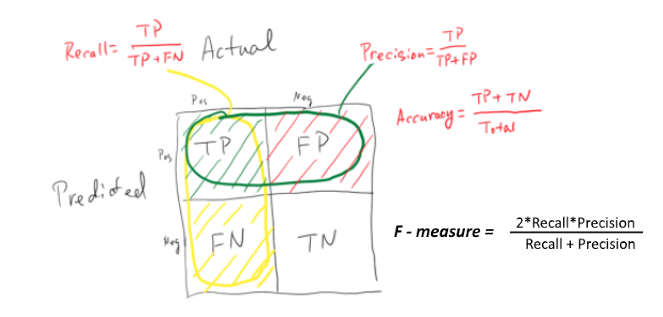 Recall = TP / TP+FN
Actual
Precision = TP / TP+FP
Accuracy = TP + TN / Total
Pos Neg
Pos TP FP
Predicted
Neg FN TN
F - measure = 2*Recall*Precision / Recall + Precision